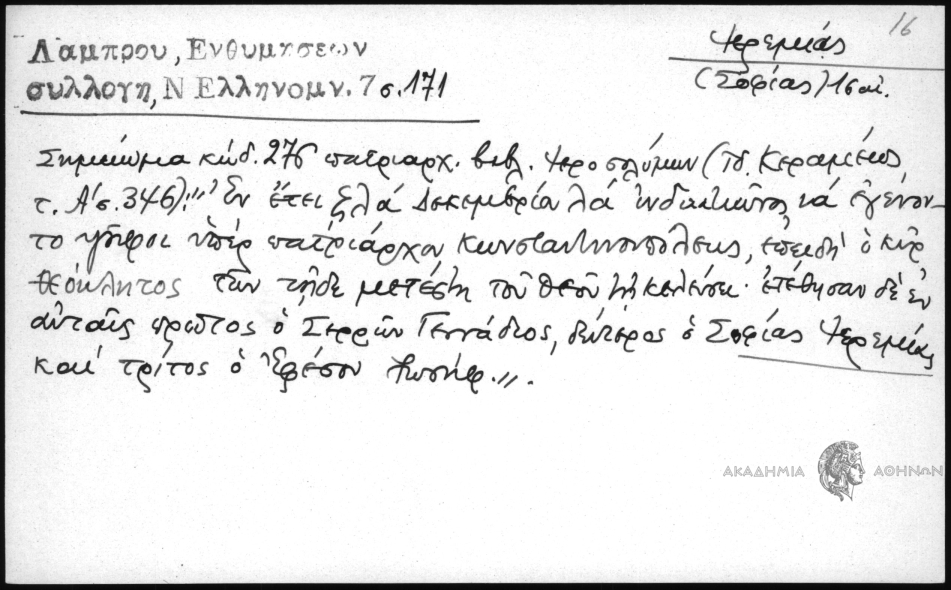 16
Λαμπρου, Ενθυμησεων
συλλογη, Ν Ελληνομν. 7 σ. 171
Ἱερεμίας
(Σοφίας) 16 αἰ.
Σημείωμα κώδ. 276 πατριαρχ. βιβλ. Ἱεροσολύμων (Πδ. Κεραμέως
τ. Α΄ σ. 346): "Ἐν ἔτει ζλά Δεκεμβρίου λά ἰνδικτιῶνος ιά ἐγένον-
το ψῆφοι ὑπέρ πατριάρχου Κωνσταντινουπόλεως, ἐπειδή ὁ κύρ
Θεόκλητος τῶν τῇδε μετέστη τοῦ θεοῦ τῇ κελεύσει· ἐτέθησαν δέ ἐν
αὐταῖς πρῶτος ὁ Σερρῶν Γεννάδιος, δεύτερος ὁ Σοφίας Ἱερεμίας
καί τρίτος ὁ Ἐφέσου Ἰωσήφ.".
ΑΚΑΔΗΜΙΑ ΑΘΗΝΩΝ